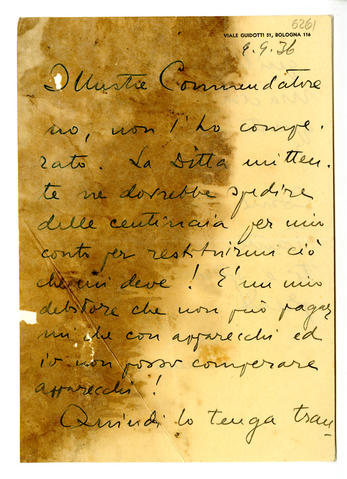 6261
VIALE GUIDOTTI 51, BOLOGNA 116
9.9.36
Illustre Commendatore
no, non l'ho compe-
rato. La Ditta mitten-
te ne dovrebbe spedire
delle centinaia per mio
conto per restituirmi ciò
che mi deve! E' un mio
debitore che non può pagar
mi che con apparecchi ed
io non posso comperare
apparecchi!
Quindi lo tenga tran-